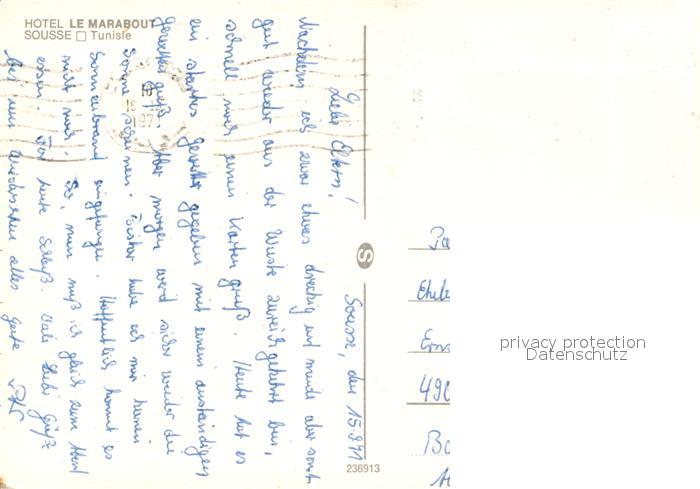 HOTEL LE MARABOUT
SOUSSE □ Tunisie
Sousse, den 15.9.71
Liebe Eltern!
Nachdem ich zwar etwas dreckig und müde aber sonst
gut wieder aus der Wüste zurückgekehrt bin,
schnell noch einen Kartengruß. Heute hat es
ein starkes Gewitter gegeben mit einem anständigen
Gewitterguß. Aber morgen wird sicher wieder die
Sonne scheinen. Bisher habe ich mir keinen
Sonnenbrand eingefangen. Hoffentlich kommt es
nicht noch. So, nun muß ich gleich zum Abend
essen. Für heute Schluß. Viele liebe Grüße
bis zum Wiedersehen alles Gute
S
236913
Ehele
490
Bo
privacy protection
Datenschutz